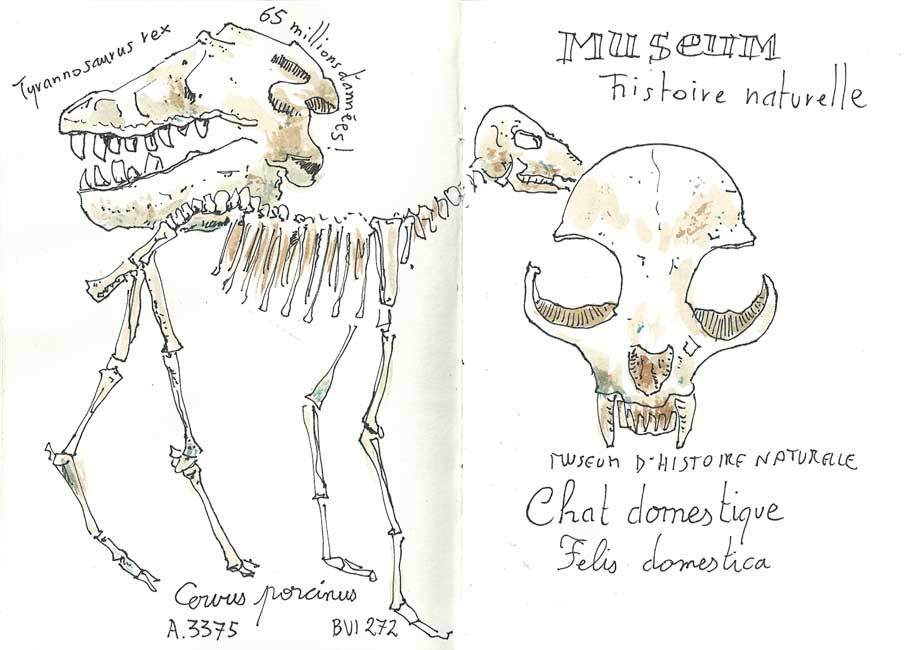 Tyrannosaurus rex
65 millions d'années!
Cervus porcinus
A.3375 BVI 272
MUSEUM
histoire naturelle
MUSEUM D'HISTOIRE NATURELLE
Chat domestique
Felis domestica